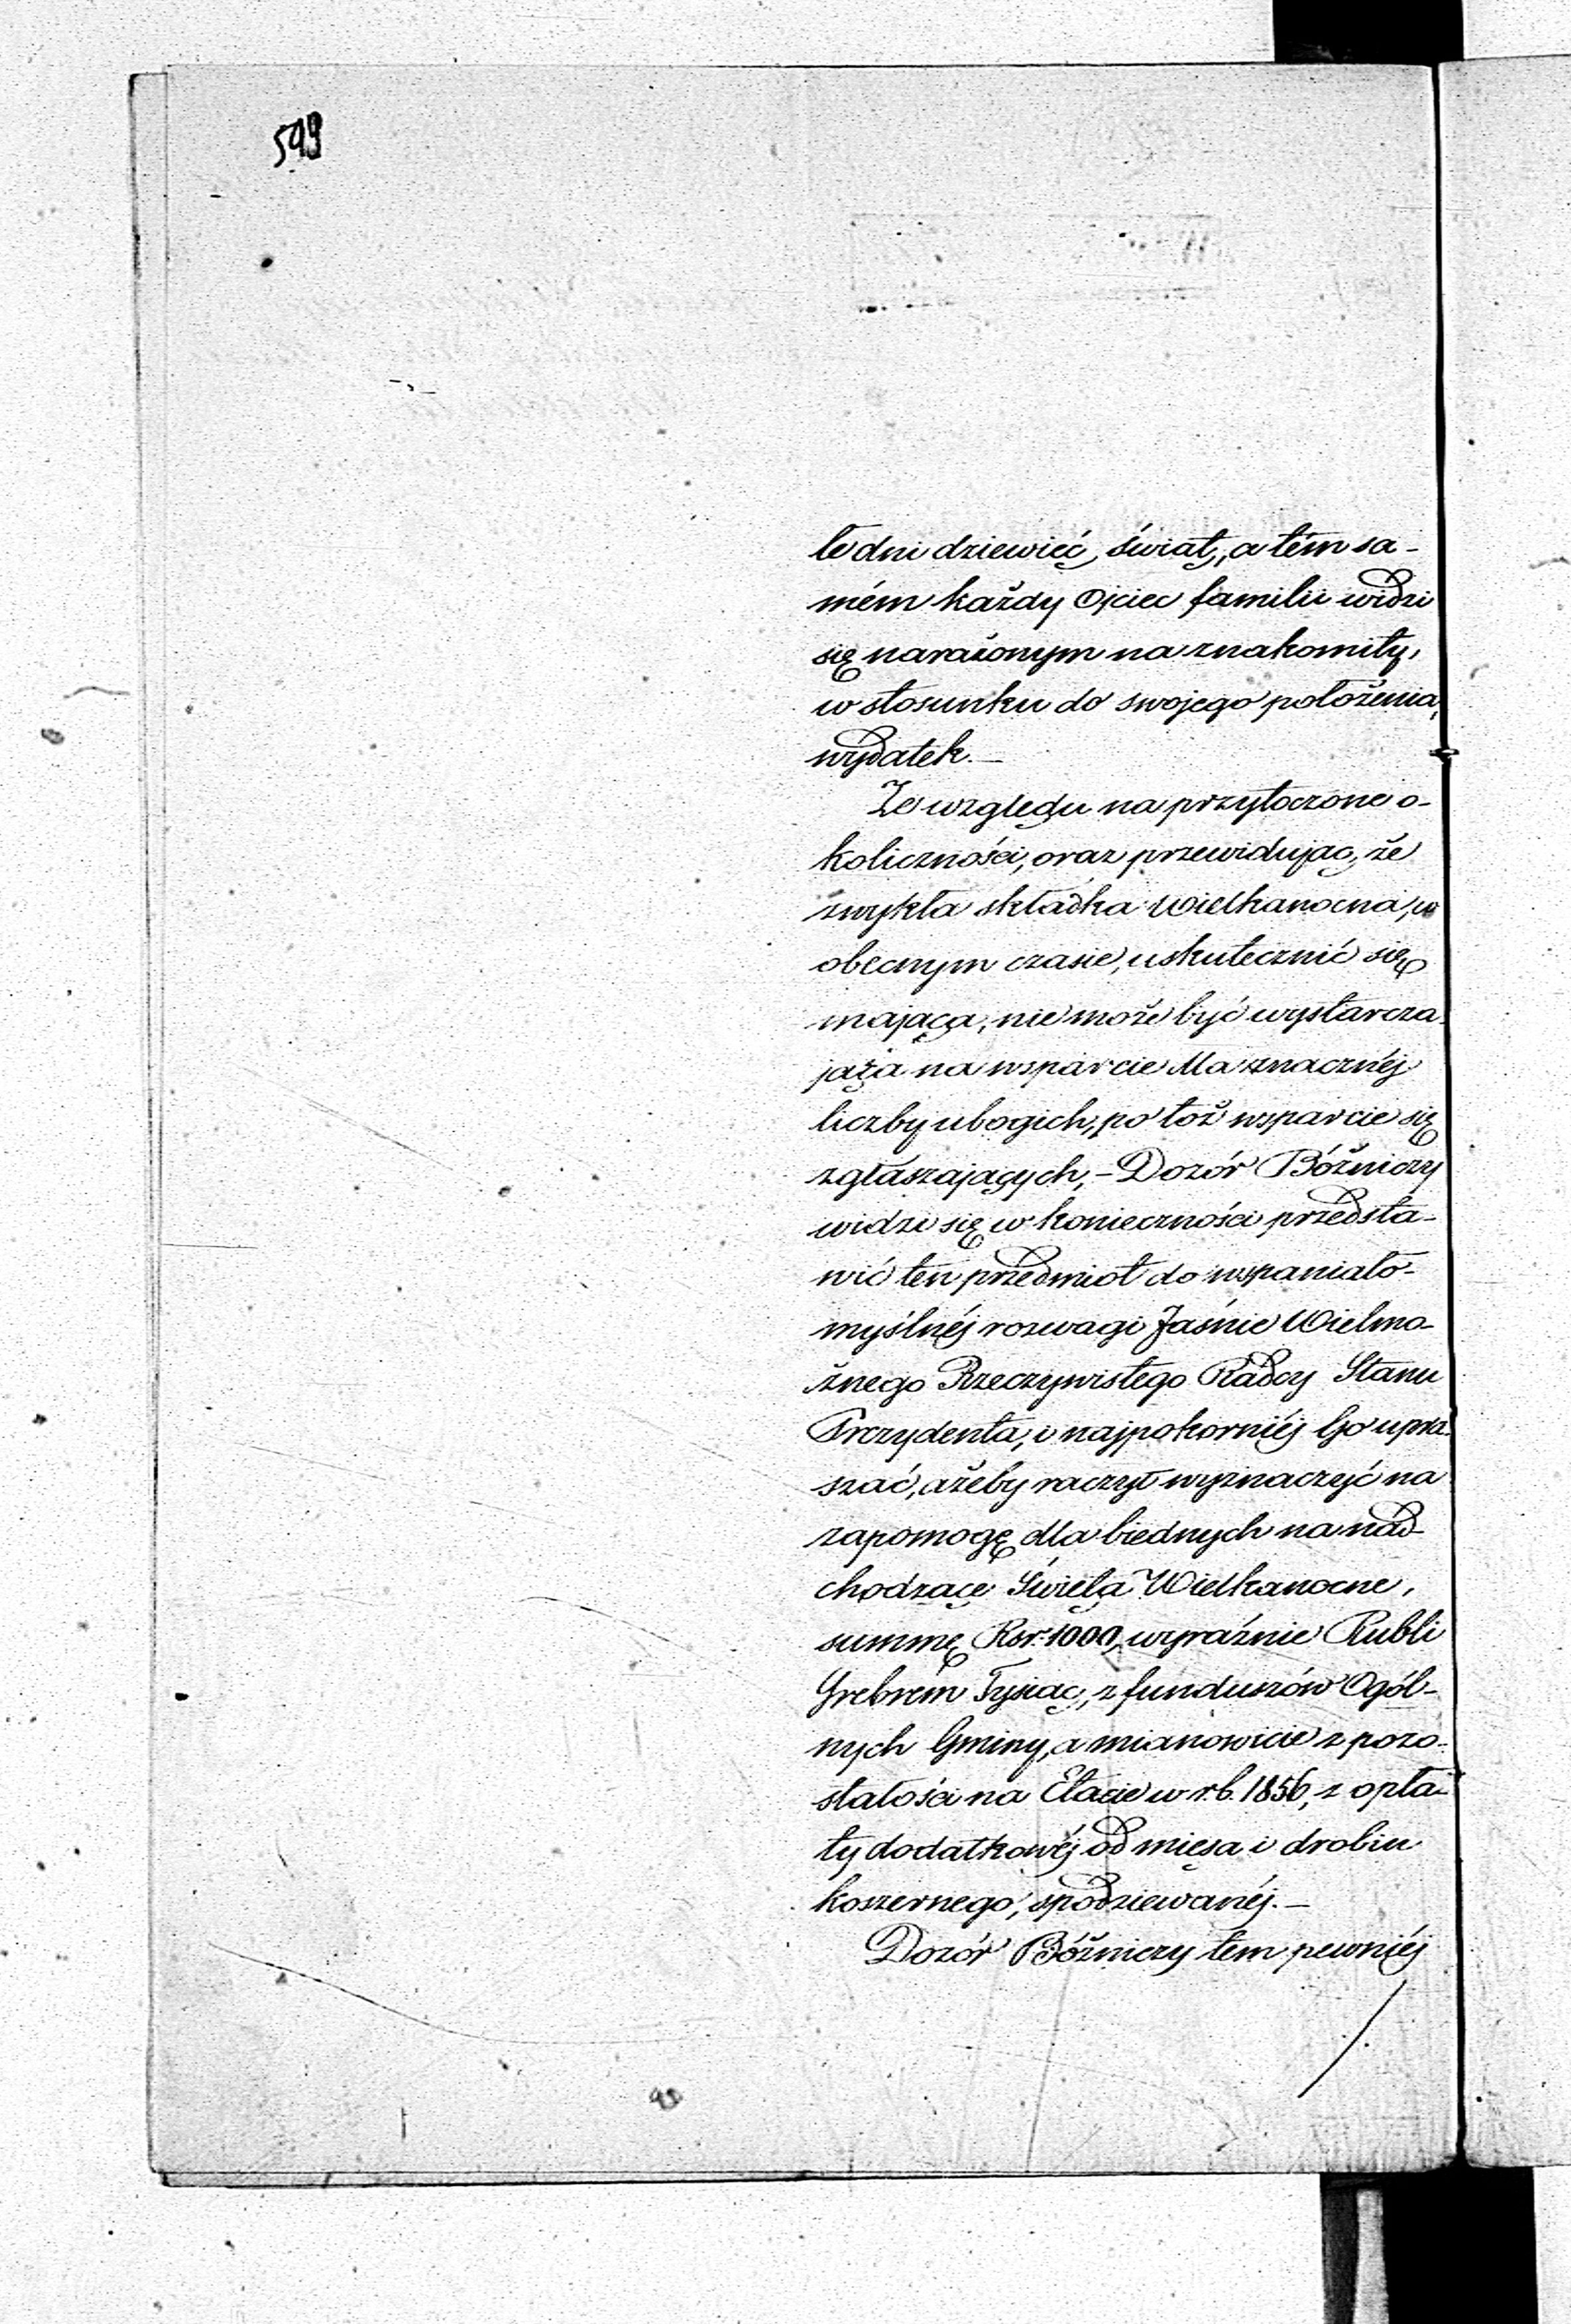 599
te dni dziewięć, świąt, a tém sa-
mém każdy Ojciec familii widzi
się narażonym na znakomity,
w stosunku do swojego położenia,
wydatek.—
Ze względu na przytoczone o-
koliczności, oraz przewidując, że
zwykła składka Wielkanocna, w
obecnym czasie, uskutecznić się
mająca, nie może być wystarcza-
jącą na wsparcie dla znacznéj
liczby ubogich, po toż wsparcie się
zgłaszających, – Dozór Bóżniczy
widzi się w konieczności przedsta-
wić ten przedmiot do wspaniało-
myślnéj rozwagi Jaśnie Wielmo-
żnego Rzeczywistego Radcy Stanu
Prezydenta, i najpokorniéj Go upra-
szać, ażeby raczył wyznaczyć na
zapomogę dla biednych na nad-
chodzące Święta Wielkanocne,
summę Rsr. 1000, wyraźnie Rubli
Srebrem Tysiąc, z funduszów Ogól-
nych Gminy, a mianowicie z pozo-
stałości na Etacie w r.b. 1856, z opła-
ty dodatkowéj od mięsa i drobiu
koszernego, spodziewanéj.—
Dozór Bóżniczy tem pewniéj